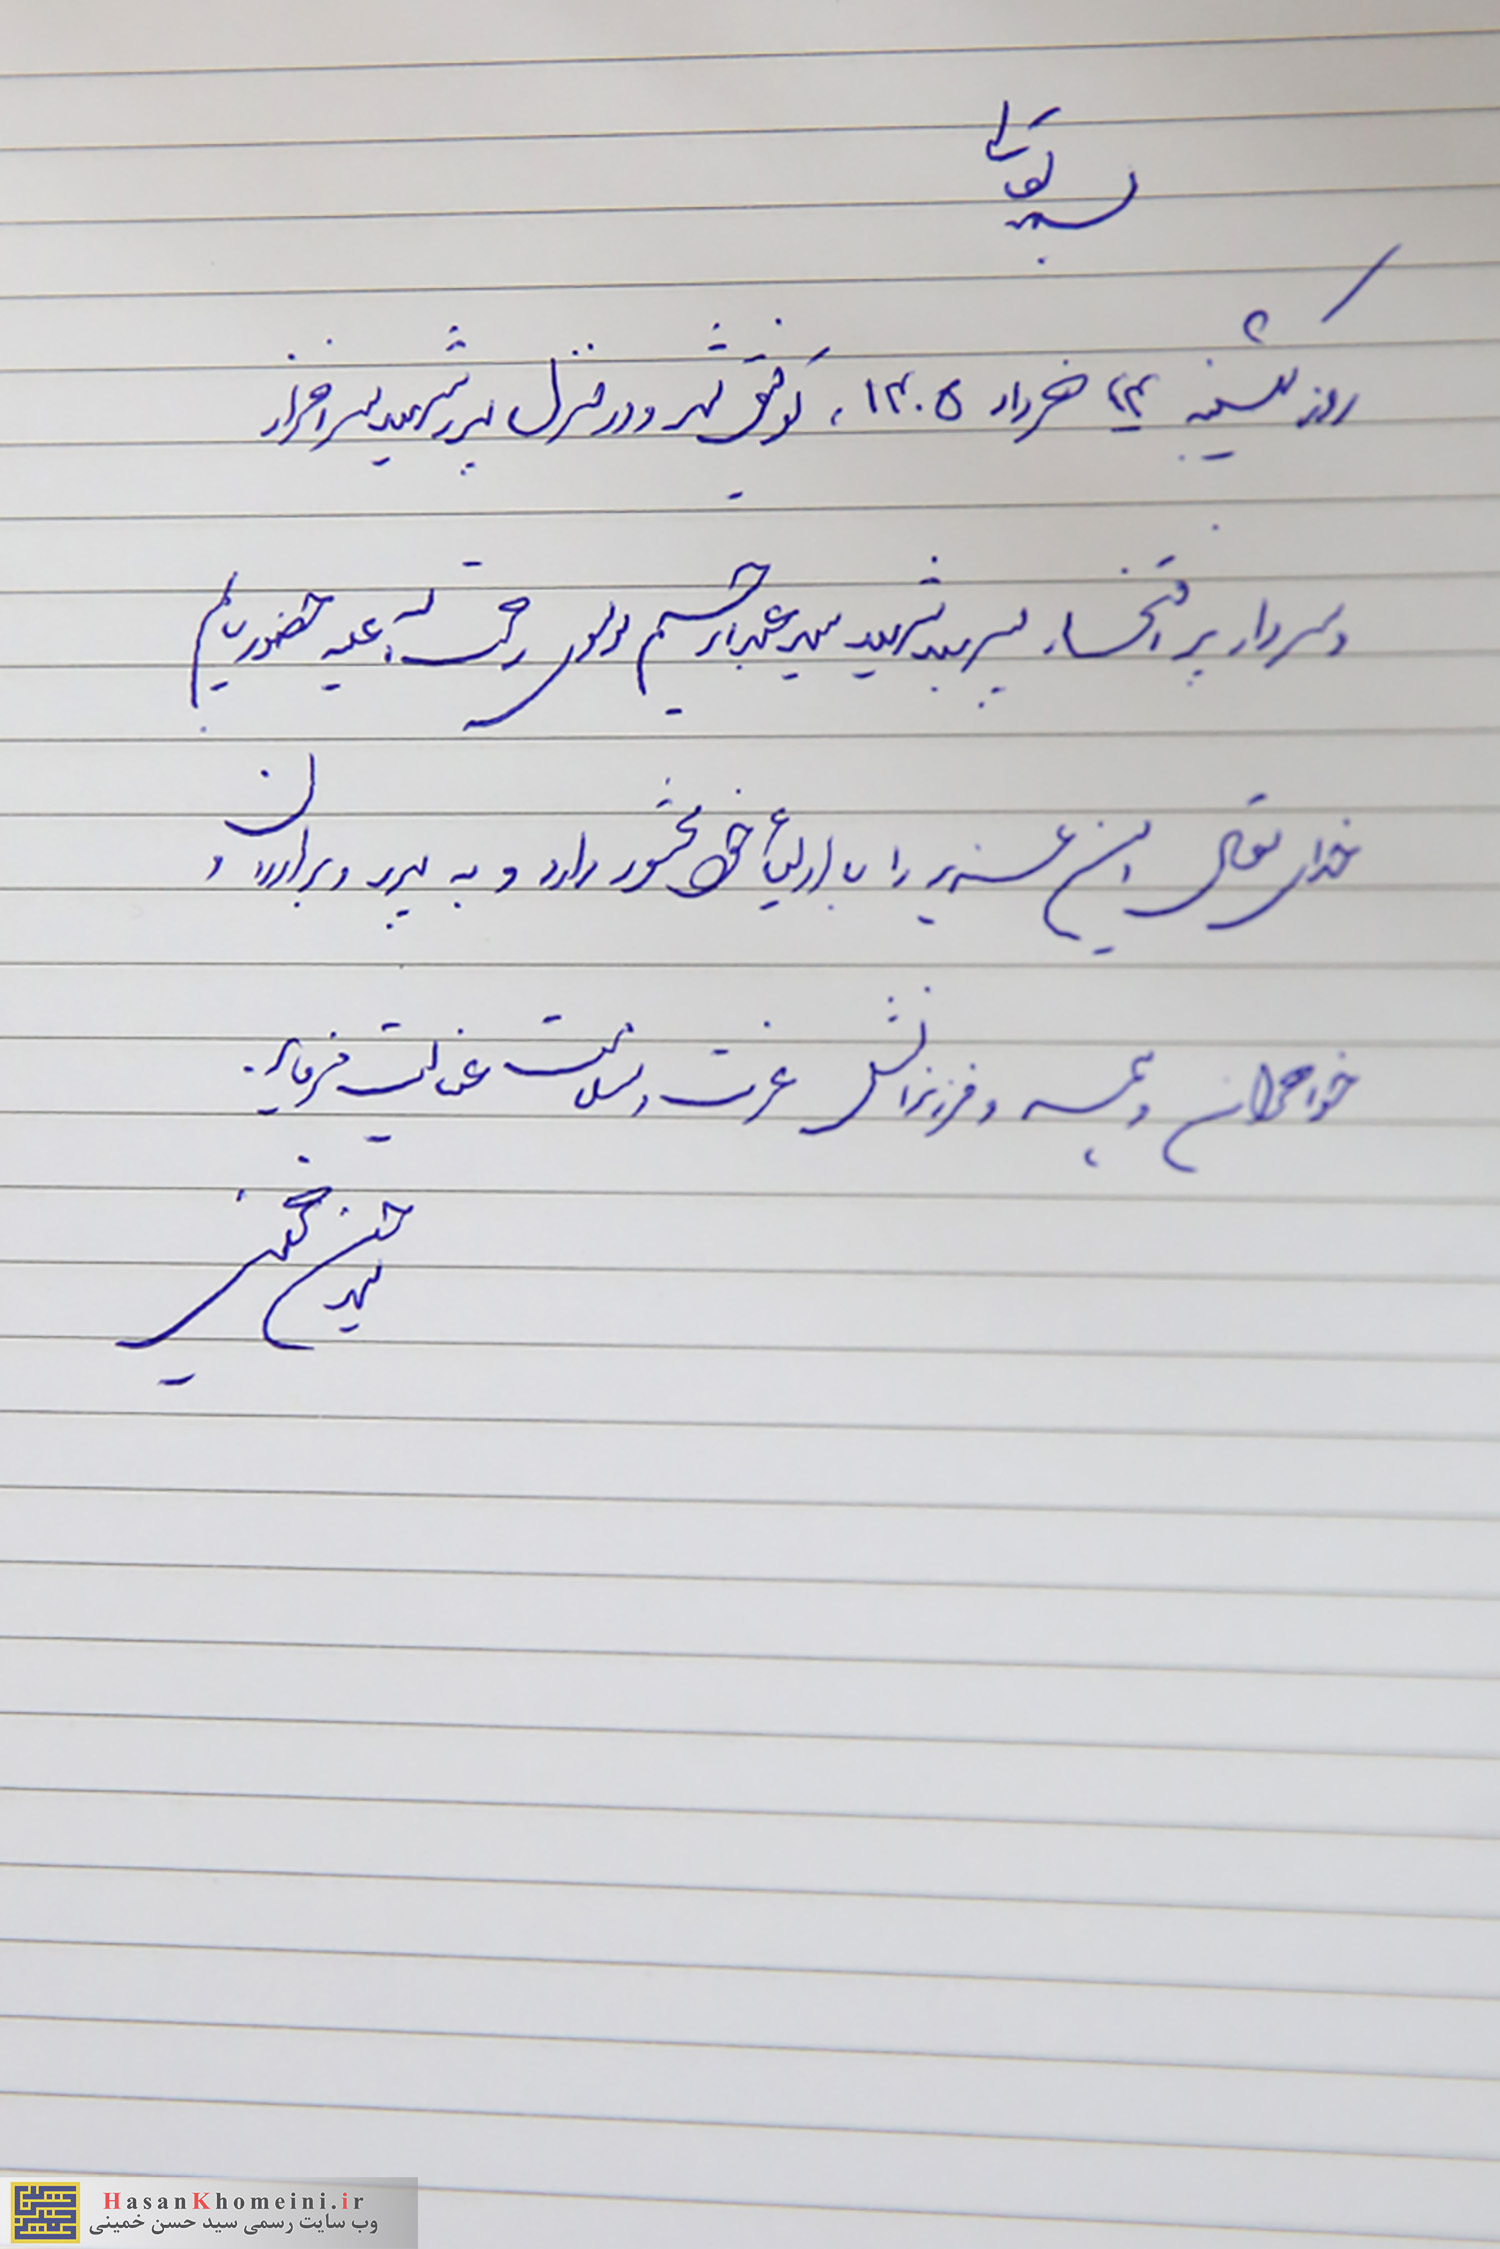 بسمه تعالی
روز یکشنبه ۲۴ خرداد ۱۴۰۵، توفیق شد و در منزل پدر شهید سرافراز
و سردار پر افتخار سپهبد شهید سید عبدالرحیم موسوی رحمت الله علیه حضور یابم
خدای تعالی این عزیز را با اولیاء خود محشور دارد و به پدر و برادران و
خواهران و همسر و فرزندانش عزت و سلامت عنایت فرماید.
سید حسن خمینی
HasanKhomeini.ir
وب سایت رسمی سید حسن خمینی